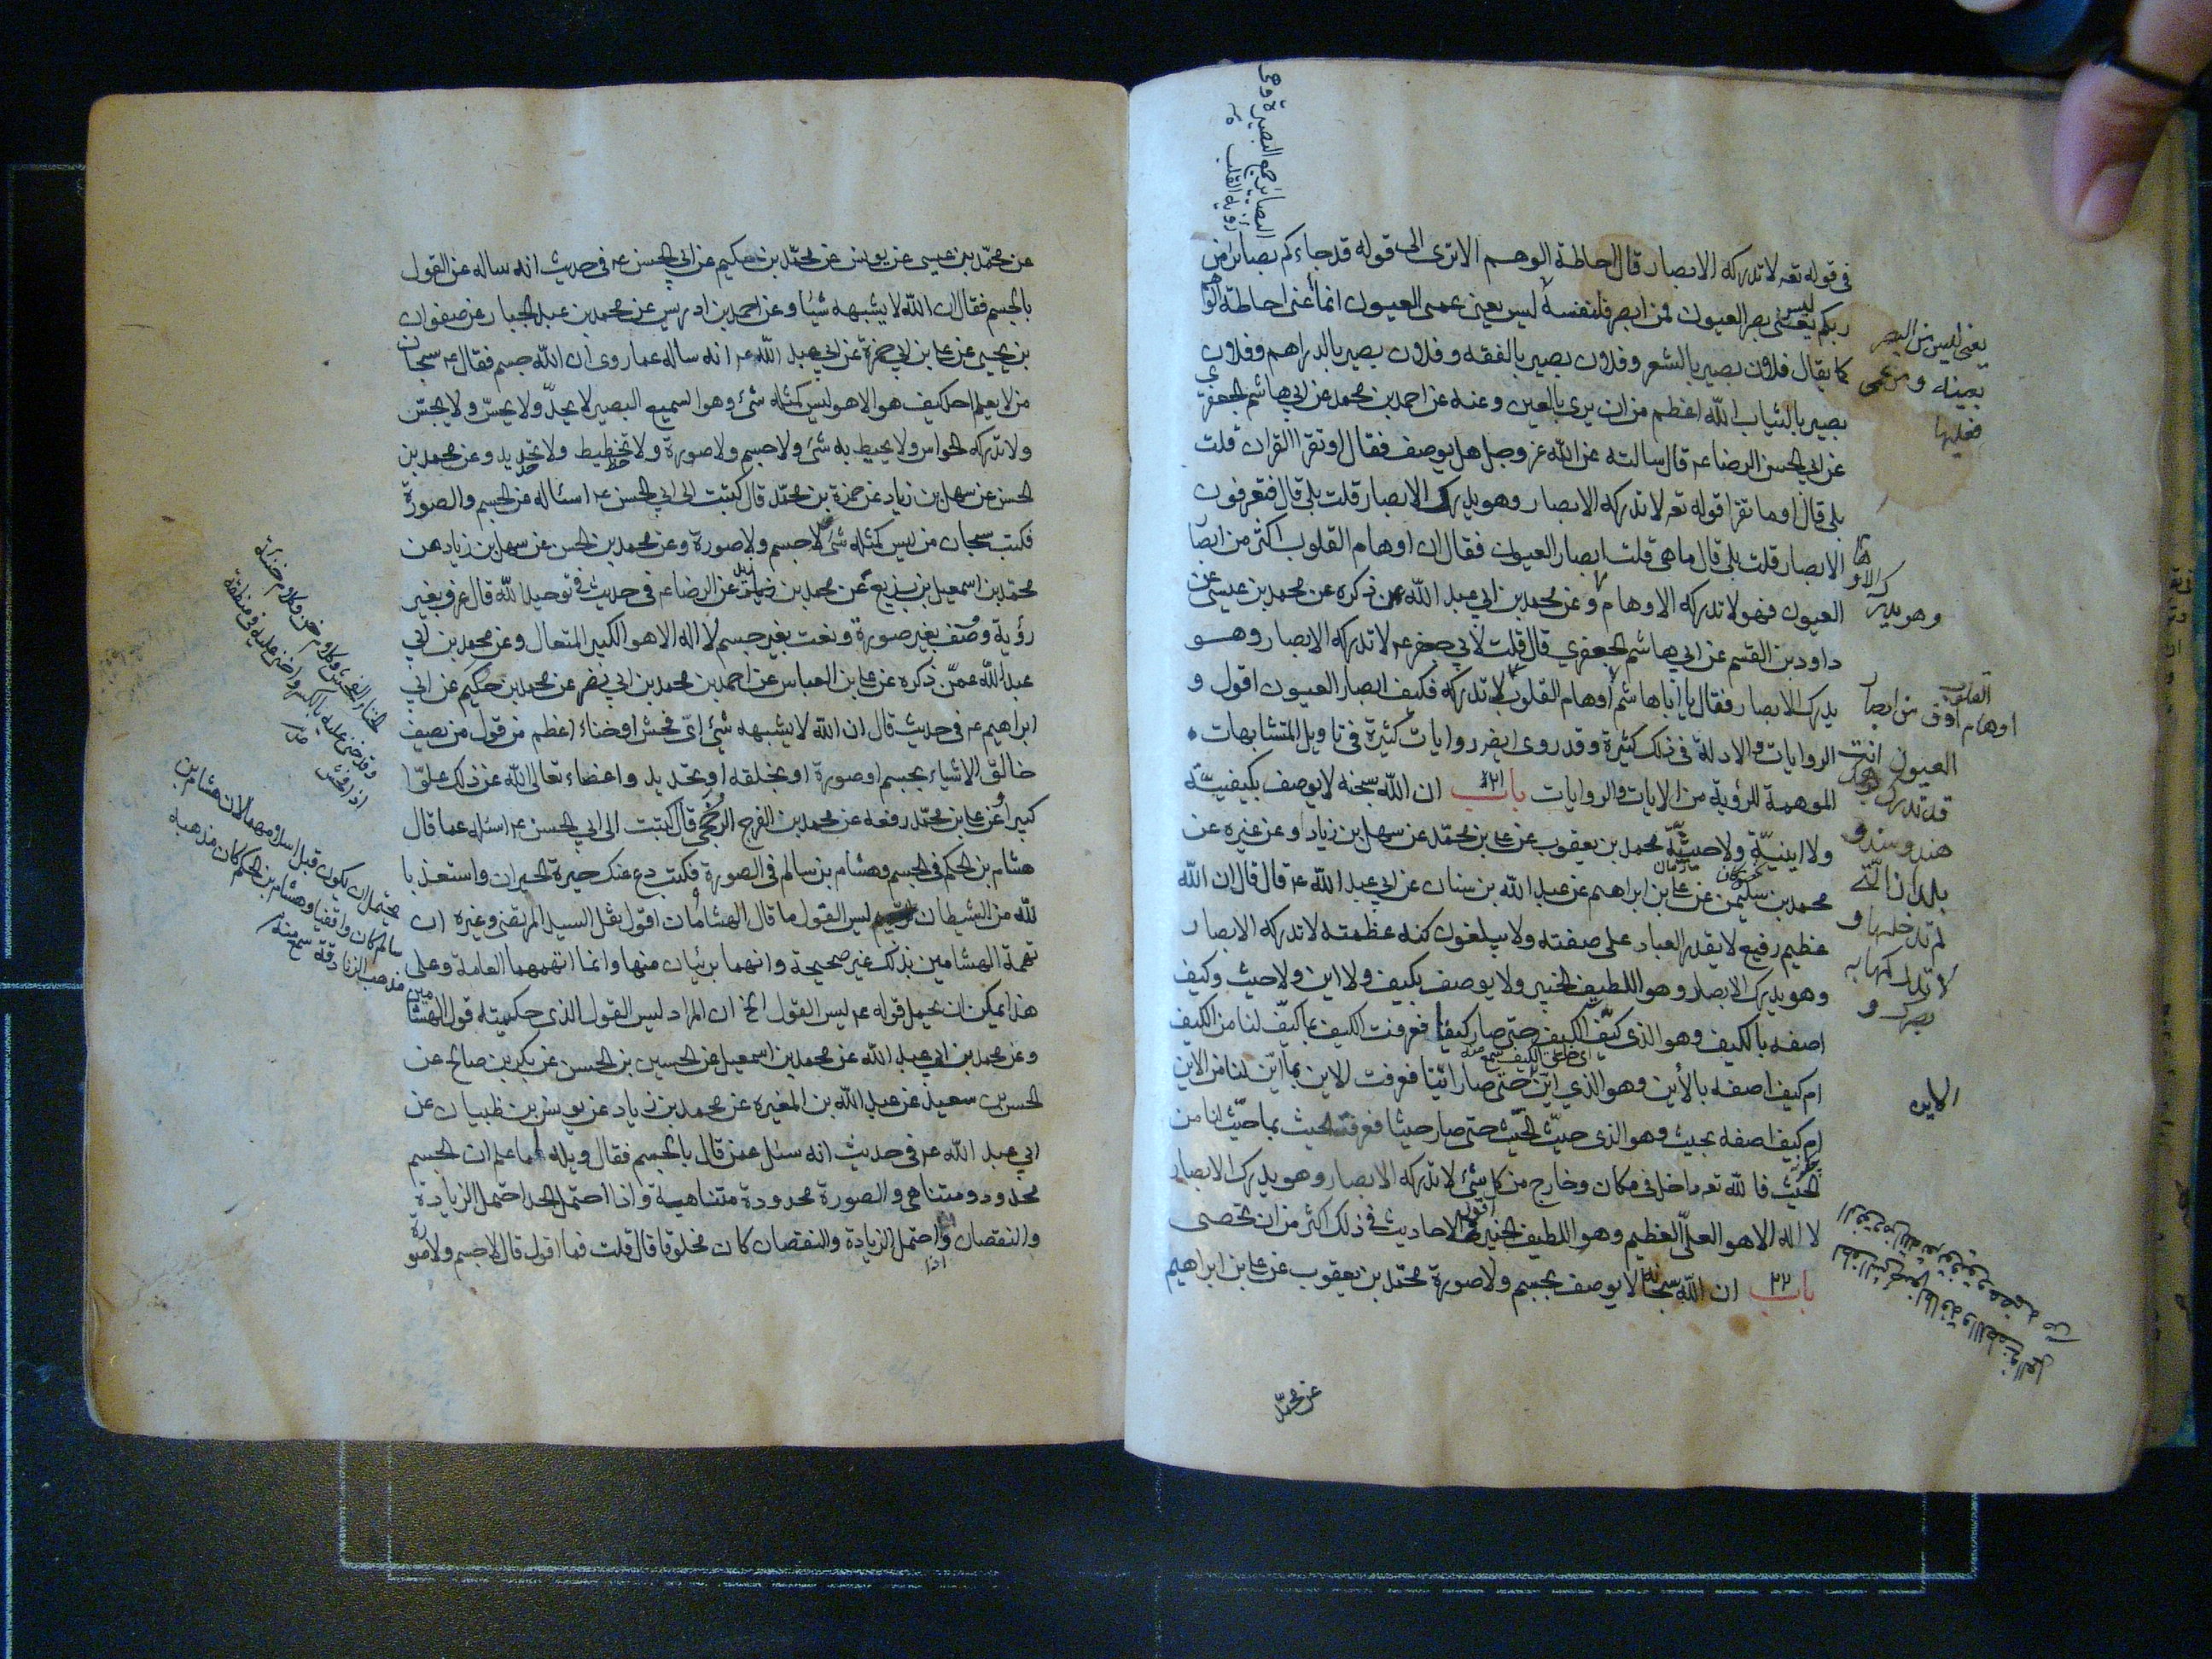 في قوله تعه لا تدركه الابصار قال احاطة الوهم الا ترى الى قوله قد جاءكم بصائر من
ربكم ليس يعنى بصر العيون فمن ابصر فلنفسه ليس يعنى عمى العيون انما عنى احاطة الوهم
كما يقال فلان بصير بالشعر وفلان بصير بالفقه وفلان بصير بالدراهم وفلان
بصير بالثياب الله اعظم من ان يرى بالعين وعنه عن احمد بن محمد عن ابي هاشم الجعفري
عن ابي الحسن الرضا عه قال سالته عن الله عز وجل هل يوصف فقال اوما تقرا القران قلت
بلى قال اوما تقرا قوله تعه لا تدركه الابصار وهو يدرك الابصار قلت بلى قال فتعرفون
الابصار قلت بلى قال ما هي قلت ابصار العيون فقال ان اوهام القلوب اكثر من ابصار
العيون فهو لا تدركه الاوهام وعن محمد بن ابي عبد الله عمن ذكره عن محمد بن عيسى عن
داود بن القسم عن ابي هاشم الجعفري قال قلت لابي جعفر عه لا تدركه الابصار وهو
يدرك الابصار فقال يا ابا هاشم اوهام القلوب لا تدركه فكيف ابصار العيون اقول و
الروايات والادلة في ذلك كثيرة وقد روى ايضر روايات كثيرة في تاويل المتشابهات
الموهمة للرؤية من الايات والروايات باب ٢١ ان الله سبحنه لا يوصف بكيفيّة
ولا اينيّة ولا حيثيّة محمد بن يعقوب عن علي بن محمّد عن سهل بن زياد وعن غيره عن
محمد بن سليمن عن علي بن ابراهيم عن عبد الله بن سنان عن ابي عبد الله عه قال قال ان الله
عظيم رفيع لا يقدر العباد على صفته ولا يبلغون كنه عظمته لا تدركه الابصار
وهو يدرك الابصار وهو اللطيف الخبير ولا يوصف بكيف ولا اين ولا حيث وكيف
اصفه بالكيف وهو الذي كيّف الكيف حتى صار كيفا فعرفت الكيف بما كيّف لنا من الكيف
ام كيف اصفه بالأين وهو الذي ايّن حتى صار اينا فعرفت الاين بما ايّن لنا من الاين
ام كيف اصفه بحيث وهو الذي حيّث الحيث حتى صار حيثا فعرفت الحيث بما حيّث لنا من
الحيث فالله تعه داخل في مكان وخارج من كل شئ لا تدركه الابصار وهو يدرك الابصار
لا اله الا هو العلي العظيم وهو اللطيف الخبير اقول والاحاديث في ذلك اكثر من ان تحصى
باب ٢٢ ان الله سبحانه لا يوصف بجسم ولا صورة محمّد بن يعقوب عن علي بن ابراهيم
عن محمّد
البصائر جمع البصيرة وهى
رؤية القلب
يعنى ليس من البصر
بعينه ومن عمى
فعليها
وهو يدرك الاوهام
اوهام القلوب ادق من ابصار
العيون انت
قد تدرك بوهمك
الهند والسند و
بلدان التى
لم تدخلها و
لا تدركها به
بصرك و
الاين
عن محمّد بن عيسى عن يونس عن محمّد بن حكيم عن ابي الحسن عه في حديث انه ساله عن القول
بالجسم فقال ان الله لا يشبهه شئ وعن احمد بن ادريس عن محمد بن عبد الجبار عن صفوان
بن يحيى عن علي بن ابي حمزة عن ابي عبد الله عه انه ساله عما روى ان الله جسم فقال عه سبحان
من لا يعلم احد كيف هو الا هو ليس كمثله شئ وهو السميع البصير لا يحدّ ولا يحسّ ولا يجسّ
ولا تدركه الحواس ولا يحيط به شئ ولا جسم ولا صورة ولا تخطيط ولا تحديد وعن محمد بن
الحسن عن سهل بن زياد عن حمزة بن محمّد قال كتبت الى ابي الحسن عه اسئاله عن الجسم والصورة
فكتب سبحان من ليس كمثله شئ لا جسم ولا صورة وعن محمد بن الحسن عن سهل بن زياد عن
محمّد بن اسمعيل بن بزيع عن محمد بن زيد عن الرضا عه في حديث في توحيد الله قال عرف بغير
رؤية ووصف بغير صورة ونعت بغير جسم لا اله الا هو الكبير المتعال وعن محمد بن ابي
عبد الله عمّن ذكره عن علي بن العباس عن احمد بن محمد بن ابي نصر عن محمد بن حكيم عن ابي
ابراهيم عه في حديث قال ان الله لا يشبهه شئ اىّ فحش او خناء اعظم من قول من يصف
خالق الاشياء بجسم او صورة او بخلقه او بتحديد واعضاء تعالى الله عن ذلك علوّا
كبيرا وعن علي بن محمّد رفعه عن محمد بن الفرج الرخّجي قال كتبت الى ابي الحسن عه اسئله عما قال
هشام بن الحكم في الجسم وهشام بن سالم في الصورة فكتب دع عنك حيرة الحيران واستعذ با
لله من الشيطان ليس القول ما قال الهشامان اقول نقل السيد المرتضى وغيره ان
تهمة الهشامين بذلك غير صحيحة وانهما بريئان منها وانما اتهمهما العامة وعلى
هذا يمكن ان يحمل قوله عه ليس القول الخ ان المراد ليس القول الذي حكيته قول الهشامين
وعن محمد بن ابي عبد الله عن محمد بن اسمعيل عن الحسين بن الحسن عن بكر بن صالح عن
الحسن بن سعيد عن عبد الله بن المغيره عن محمد بن زياد عن يونس بن ظبيان عن
ابي عبد الله عه في حديث انه سئل عمن قال بالجسم فقال ويله اما علم ان الجسم
محدود ومتناهي والصورة محدودة متناهية واذا احتمل الحد احتمل الزيادة
والنقصان واذا احتمل الزيادة والنقصان كان مخلوقا قال قلت فما اقول قال لا جسم ولا صورة
الخناء الفحش وكلام خن وكلام خنية
وقد خنى عليه بالكسر واخنى عليه في منطقه
اذا فحش
يحتمل ان يكون قبل اسلامهما لان هشام بن
سالم كان واقفيا وهشام بن الحكم كان مذهبه
مذهب الزنادقة سمع منه